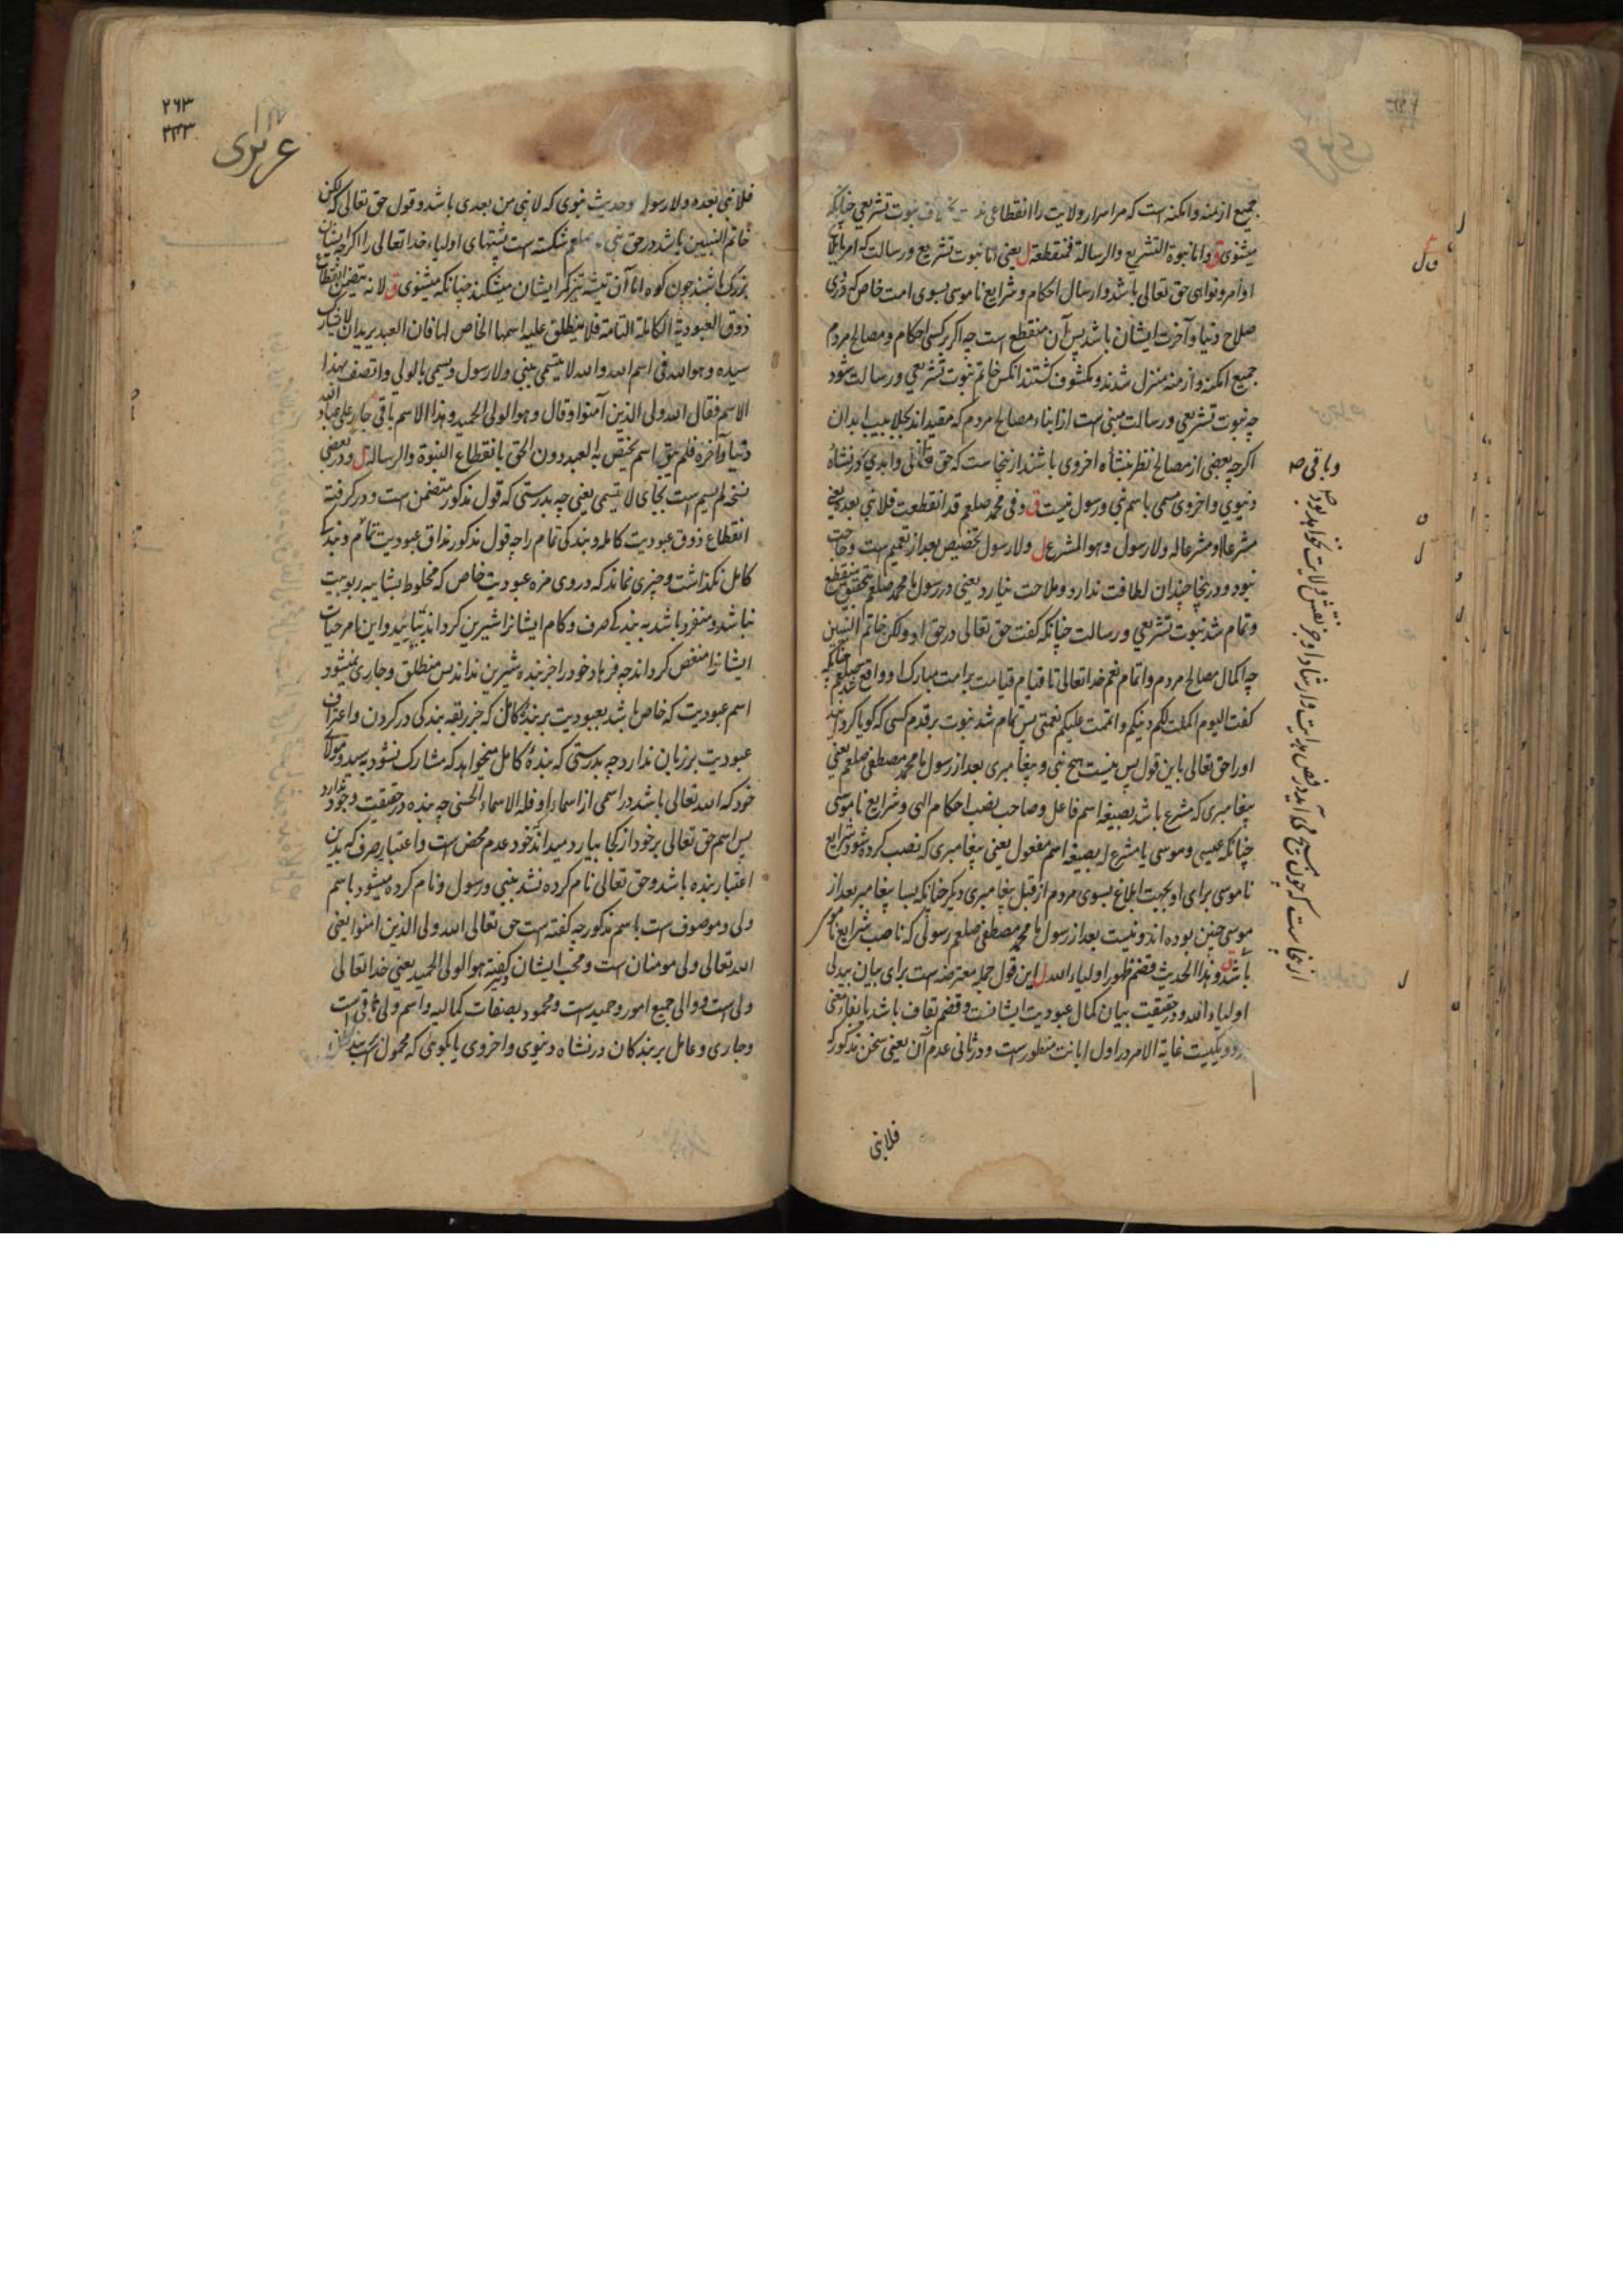 جمیع ازمنه و امکنه است که مر اسرار ولایت را انقطاعی نبوت تشریعی چنانکه
میشنوی ق و اما نبوة التشریع و الرسالة فمنقطعة ل یعنی اما نبوت تشریع و رسالت که امر بابلاغ
اوامر و نواهی حق تعالی باشد و ارسال احکام و شرایع ناموسی بسوی امت خاص که در وی
صلاح دنیا و آخرت ایشان باشد پس آن منقطع است چه اگر بر کسی احکام و مصالح مردم
جمیع امکنه و ازمنه منزل شدند و مکشوف گشتند آنکس خاتم نبوت تشریعی و رسالت شود
چه نبوت تشریعی و رسالت مبنی است از ابناء مصالح مردم که مقیداند بجلابیب ابدان
اگرچه بعضی از مصالح نظر بنشأه اخروی باشند ازینجاست که حق تعالی و ابدی در نشأه
دنیوی و اخروی مسمی باسم نبی و رسول نیست ق و فی محمد صلعم قد انقطعت فلا نبی بعده یعنی
مشرعا او مشرعا له و لا رسول و هو المشرع ل و لا رسول تخصیص بعد از تعمیم است و حاجت
نبود و درینجا چندان لطافت ندارد و ملاحت نیارد یعنی در رسول ما محمد صلعم بتحقیق منقطع
و تمام شد نبوت تشریعی و رسالت چنانکه گفت حق تعالی در حق او و لکن خاتم النبیین
چه اکمال مصالح مردم و اتمام نعم خدا تعالی تا قیام قیامت بر امت مبارک او واقع چنانکه
گفت الیوم اکملت لکم دینکم و اتممت علیکم نعمتی پس تمام شد نبوت بر قدم کسی که گویا گردانید
او را حق تعالی باین قول پس نیست هیچ نبی و پیغامبری بعد از رسول ما محمد مصطفی صلعم یعنی
پیغامبری که مشرع باشد بصیغه اسم فاعل و صاحب نصب احکام الهی و شرایع ناموسی
چنانکه عیسی و موسی یا مشرع له بصیغه اسم مفعول یعنی پیغامبری که نصب کرده شود شرایع
ناموسی برای او بجهت ابلاغ بسوی مردم از قبل پیغامبری دیگر چنانکه بسا پیغامبر بعد از
موسی چنین بوده اند و نیست بعد از رسول ما محمد مصطفی صلعم رسولی که ناصب شرایع ناموسی
باشد ق و هذا الحدیث قصم ظهور اولیاء الله ل این قول جمله معترضه است برای بیان بیدلی
اولیاء الله و در حقیقت بیان کمال عبودیت ایشانست و قصم بقاف باشد یا بفا معنی
غایة الامر در اول ابانت منظورست و در ثانی عدم آن یعنی سخن مذکور که
و باقی صه
از نجاست که چون مسیح می آید در فص هدایت و ارشاد او جز نقش ولایت نخواهد بود
فلا نبی
۲۶۳
۳۳۳
فلا نبی بعده و لا رسول و حدیث نبوی که لا نبی من بعدی باشد و قول حق تعالی که لکن
خاتم النبیین باشد در حق نبی صلعم شکسته است پشتهای اولیاء خدا تعالی را اگرچه ایشان
بزرگ باشند چون کوه اما آن تیشه تیز کمر ایشان میشکند چنانکه میشنوی ق لانه یتضمن انقطاع
ذوق العبودیة الکاملة التامة فلا ینطلق علیه اسمها الخاص بها فان العبد یرید ان لا یشارک
سیده و هو الله فی اسم الله و الله لا یتسمی بنبی و لا رسول و یسمی بالولی و اتصف بهذا
الاسم فقال الله ولی الذین آمنوا و قال و هو الولی الحمید و هذا الاسم باقی جار علی عباد الله
دنیا و آخرة فلم یبق اسم یختص به العبد دون الحق بانقطاع النبوة و الرسالة ل و در بعضی
نسخه لم یسم است بجای لا یتسمی یعنی چه بدرستی که قول مذکور متضمن است و در گرفته
انقطاع ذوق عبودیت کامله و بندگی تمام را چه قول مذکور مذاق عبودیت تمام و بنده
کامل نگذاشت و چیزی نماند که در وی مزه عبودیت خاص که مخلوط بشایبه ربوبیت
نباشد و منفرد باشد به بندگی صرف و کام ایشانرا شیرین گرداند بتایید و این نامرحیات
ایشانرا منغص گرداند چه فرهاد خود را جز بنده شیرین نداند پس منطلق و جاری نمیشود
اسم عبودیت که خاص باشد بعبودیت بر بنده کامل که جز ربقه بندگی در گردن و اعتراف
عبودیت بر زبان ندارد چه بدرستی که بنده کامل میخواهد که مشارک نشود به سید و مولای
خود که الله تعالی باشد در اسمی از اسماء او فله الاسماء الحسنی چه بنده در حقیقت وجود ندارد
پس اسم حق تعالی بر خود از کجا بیارد میداند خود عدم محض است و اعتبار صرف که بدین
اعتبار بنده باشد و حق تعالی نام کرده نشد بنبی و رسول و نام کرده میشود باسم
ولی و موصوف است باسم مذکور چه گفته است حق تعالی الله ولی الذین امنوا یعنی
الله تعالی ولی مومنان است و محب ایشان و گفته هو الولی الحمید یعنی خدا تعالی
ولی است و والی جمیع امور و حمید است و محمود بصفات کمالیه و اسم ولی باقی است
و جاری و عامل بر بندگان در نشاه دنیوی و اخروی یا گوئی که محمول است